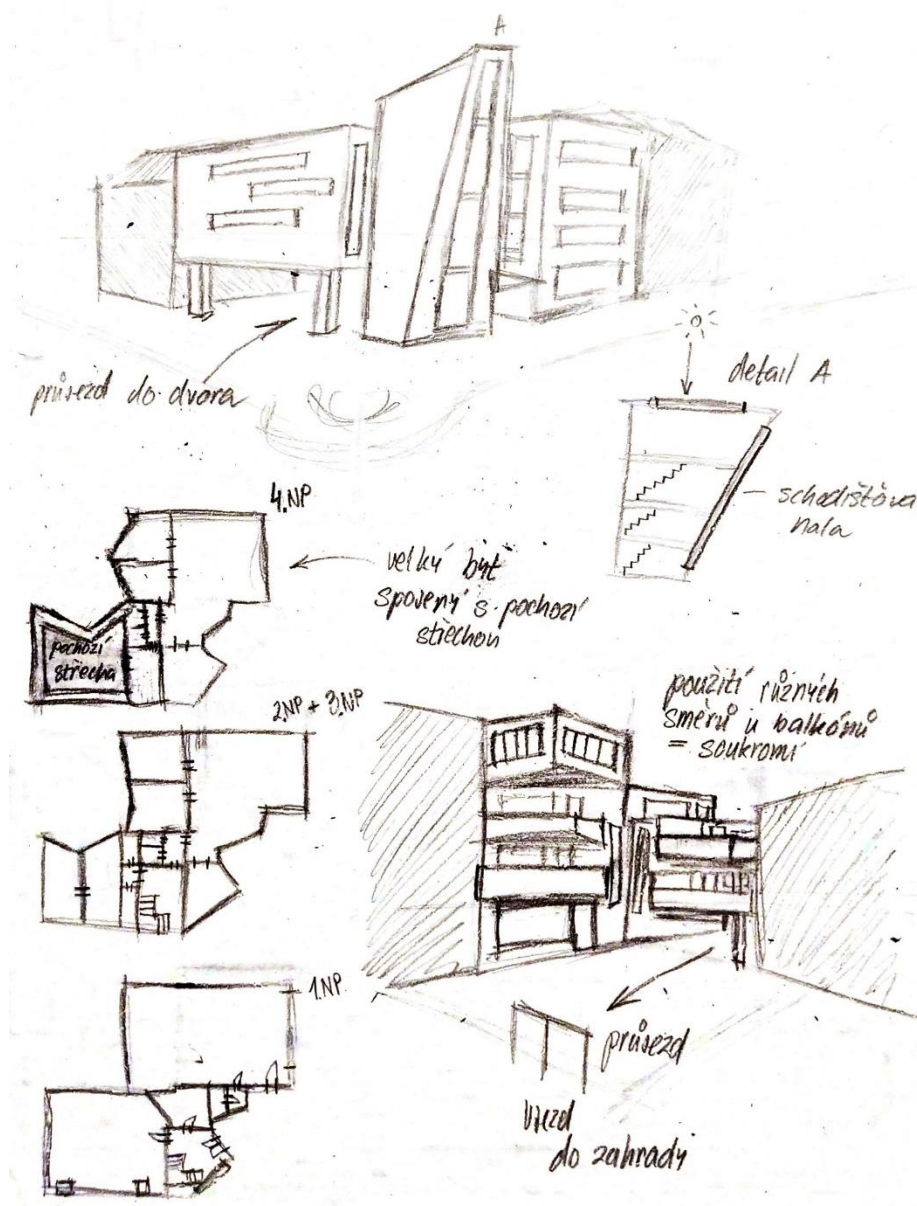 A
průjezd do dvora
detail A
schodišťova
hala
4.NP
velký byt
spojený s pochozí
střechou
pochozí
střecha
2.NP + 3.NP
použití různých
směrů u balkónů
= soukromí
1.NP
průjezd
vjezd
do zahrady